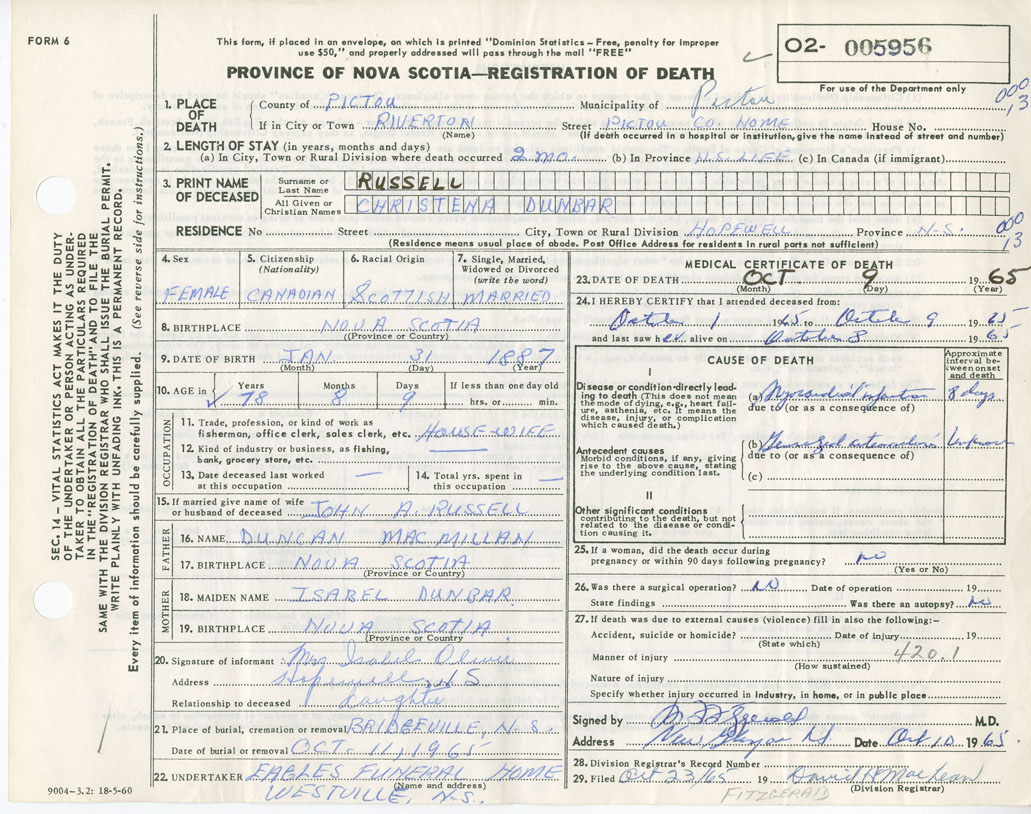 FORM 6
This form, if placed in an envelope, on which is printed "Dominion Statistics – Free, penalty for improper
use $50," and properly addressed will pass through the mail "FREE"
O2- 005956
For use of the Department only
PROVINCE OF NOVA SCOTIA—REGISTRATION OF DEATH
000
13
SEC. 14 – VITAL STATISTICS ACT MAKES IT THE DUTY
OF THE UNDERTAKER OR PERSON ACTING AS UNDER-
TAKER TO OBTAIN ALL THE PARTICULARS REQUIRED
IN THE "REGISTRATION OF DEATH" AND TO FILE THE
SAME WITH THE DIVISION REGISTRAR WHO SHALL ISSUE THE BURIAL PERMIT.
WRITE PLAINLY WITH UNFADING INK. THIS IS A PERMANENT RECORD.
Every item of information should be carefully supplied. (See reverse side for instructions.)
1. PLACE OF DEATH
County of PICTOU Municipality of Pictou
If in City or Town RIVERTON Street PICTOU CO. HOME House No.
(Name) (If death occurred in a hospital or institution, give the name instead of street and number)
2. LENGTH OF STAY (in years, months and days)
(a) In City, Town or Rural Division where death occurred 2 mo. (b) In Province N.S. LIFE (c) In Canada (if immigrant)
3. PRINT NAME OF DECEASED
Surname or Last Name RUSSELL
All Given or Christian Names CHRISTENA DUNBAR
RESIDENCE No Street City, Town or Rural Division HOPEWELL Province N.S.
000
13
(Residence means usual place of abode. Post Office Address for residents in rural parts not sufficient)
4. Sex
FEMALE
5. Citizenship (Nationality)
CANADIAN
6. Racial Origin
SCOTTISH
7. Single, Married, Widowed or Divorced (write the word)
MARRIED
8. BIRTHPLACE NOVA SCOTIA
(Province or Country)
9. DATE OF BIRTH JAN. 31 1887
(Month) (Day) (Year)
10. AGE in Years Months Days If less than one day old
78 8 9 hrs. or min.
OCCUPATION
11. Trade, profession or kind of work as
fisherman, office clerk, sales clerk, etc. HOUSE-WIFE
12. Kind of industry or business, as fishing,
bank, grocery store, etc.
13. Date deceased last worked
at this occupation
14. Total yrs. spent in
this occupation
15. If married give name of wife
or husband of deceased JOHN A. RUSSELL
FATHER
16. NAME DUNCAN MAC MILLAN
17. BIRTHPLACE NOVA SCOTIA
(Province or Country)
MOTHER
18. MAIDEN NAME ISABEL DUNBAR
19. BIRTHPLACE NOVA SCOTIA
(Province or Country)
20. Signature of informant Mrs Isabel Oliver
Address Hopewell, N S
Relationship to deceased daughter
21. Place of burial, cremation or removal BRIDGEVILLE, N.S.
Date of burial or removal OCT. 11, 1965
22. UNDERTAKER EAGLES FUNERAL HOME
(Name and address)
WESTVILLE, N.S.
9004-3.2: 18-5-60
MEDICAL CERTIFICATE OF DEATH
23. DATE OF DEATH OCT 9 1965
(Month) (Day) (Year)
24. I HEREBY CERTIFY that I attended deceased from:
October 1 1965 to October 9 1965
and last saw her alive on October 8 1965
CAUSE OF DEATH
Approximate interval between onset and death
I
Disease or condition directly lead-
ing to death (This does not mean
the mode of dying, e.g., heart fail-
ure, asthenia, etc. It means the
disease, injury, or complication
which caused death.)
(a) Myocardial infarction 8 days
due to (or as a consequence of)
Antecedent causes
Morbid conditions, if any, giving
rise to the above cause, stating
the underlying condition last.
(b) Generalized arteriosclerosis Unknown
due to (or as a consequence of)
(c)
II
Other significant conditions
contributing to the death, but not
related to the disease or condi-
tion causing it.
25. If a woman, did the death occur during
pregnancy or within 90 days following pregnancy? no
(Yes or No)
26. Was there a surgical operation? No Date of operation 19
State findings Was there an autopsy? No
27. If death was due to external causes (violence) fill in also the following:–
Accident, suicide or homicide? Date of injury 19
(State which)
Manner of injury 420.1
(How sustained)
Nature of injury
Specify whether injury occurred in industry, in home, or in public place
Signed by M Fitzgerald M.D.
Address New Glasgow NS Date Oct 10 1965.
28. Division Registrar's Record Number
29. Filed Oct 23/65 19 David H MacLean
(Division Registrar)
FITZGERALD